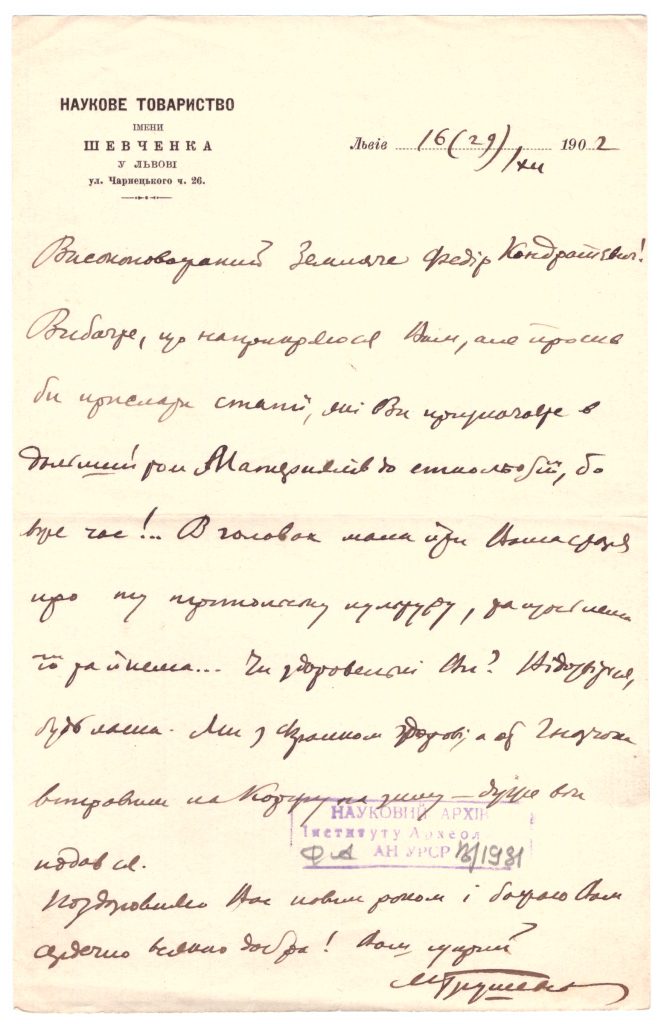 НАУКОВЕ ТОВАРИСТВО
ІМЕНИ
ШЕВЧЕНКА
У ЛЬВОВІ
ул. Чарнецького ч. 26.
Львів 16(29)/XII 1902
Високоповажаний Земляче Федір Кондратєвич!
Вибачте, що наприкряюся Вам, але просив
би прислати статї, які Ви призначаєте в
дальший том Материялів до етнольоґії, бо
вже час!.. В головах мала йти Ваша статя
про ту трипільську культуру, та щось нема
її та й нема... Чи здоровенькі Ви? Відозвіться,
будь ласка. Ми з Франком здорові, а от Гнатюка
вправили на Корфу на зиму – дуже він
подався.
Поздоровляю Вас новим роком і бажаю Вам
сердечно всякого добра! Ваш щирий
МГрушевс
НАУКОВИЙ АРХІВ
Інституту Археол
ФА АН УРСР В/1931